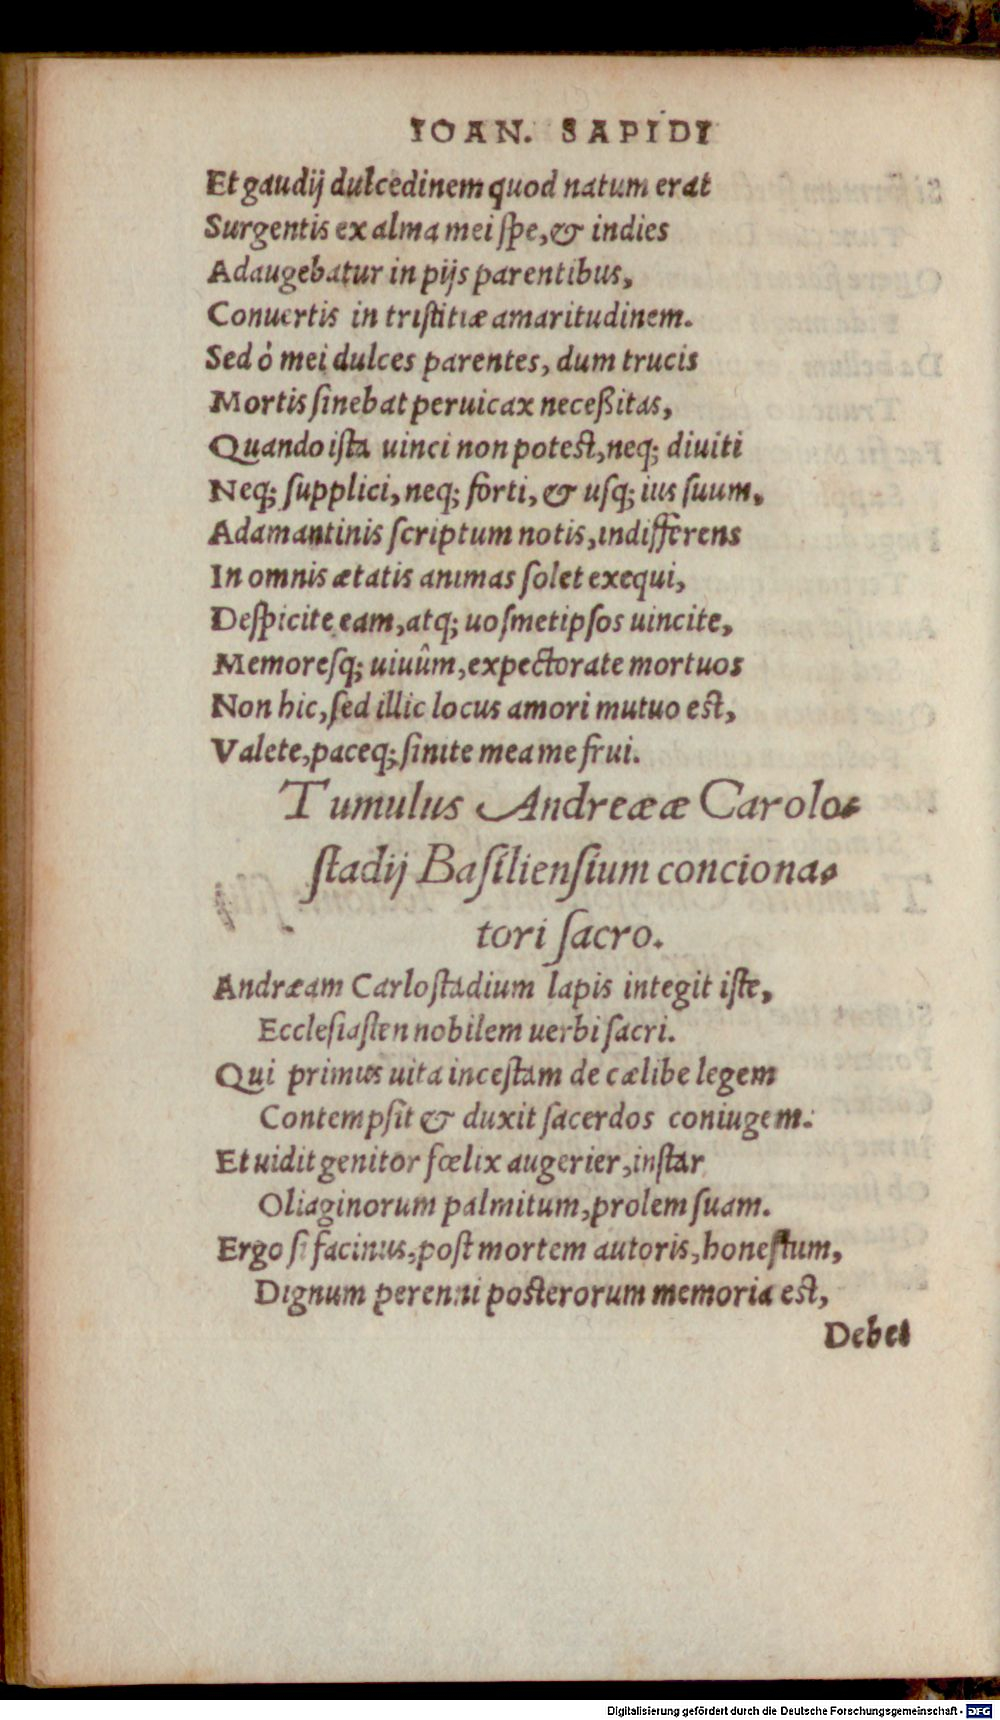 IOAN. SAPIDI
Et gaudij dulcedinem quod natum erat
Surgentis ex alma mei ſpe, & indies
Adaugebatur in pijs parentibus,
Conuertis in triſtitiæ amaritudinem.
Sed ó mei dulces parentes, dum trucis
Mortis ſinebat peruicax neceßitas,
Quando iſta uinci non poteſt, neq; diuiti
Neq; ſupplici, neq; forti, & uſq; ius ſuum,
Adamantinis ſcriptum notis, indifferens
In omnis ætatis animas ſolet exequi,
Deſpicite eam, atq; uoſmetipſos uincite,
Memoresq; uiuûm, expectorate mortuos
Non hic, ſed illic locus amori mutuo eſt,
Valete, paceq; ſinite mea me frui.
Tumulus Andreææ Carolo-
ſtadij Baſilienſium conciona-
tori ſacro.
Andræam Carloſtadium lapis integit iſte,
Eccleſiaſten nobilem uerbi ſacri.
Qui primus uita inceſtam de cælibe legem
Contempſit & duxit ſacerdos coniugem.
Et uidit genitor fœlix augerier, inſtar
Oliaginorum palmitum, prolem ſuam.
Ergo ſi facinus, poſt mortem autoris, honeſtum,
Dignum perenni poſterorum memoria eſt,
Debet
Digitalisierung gefördert durch die Deutsche Forschungsgemeinschaft - DFG